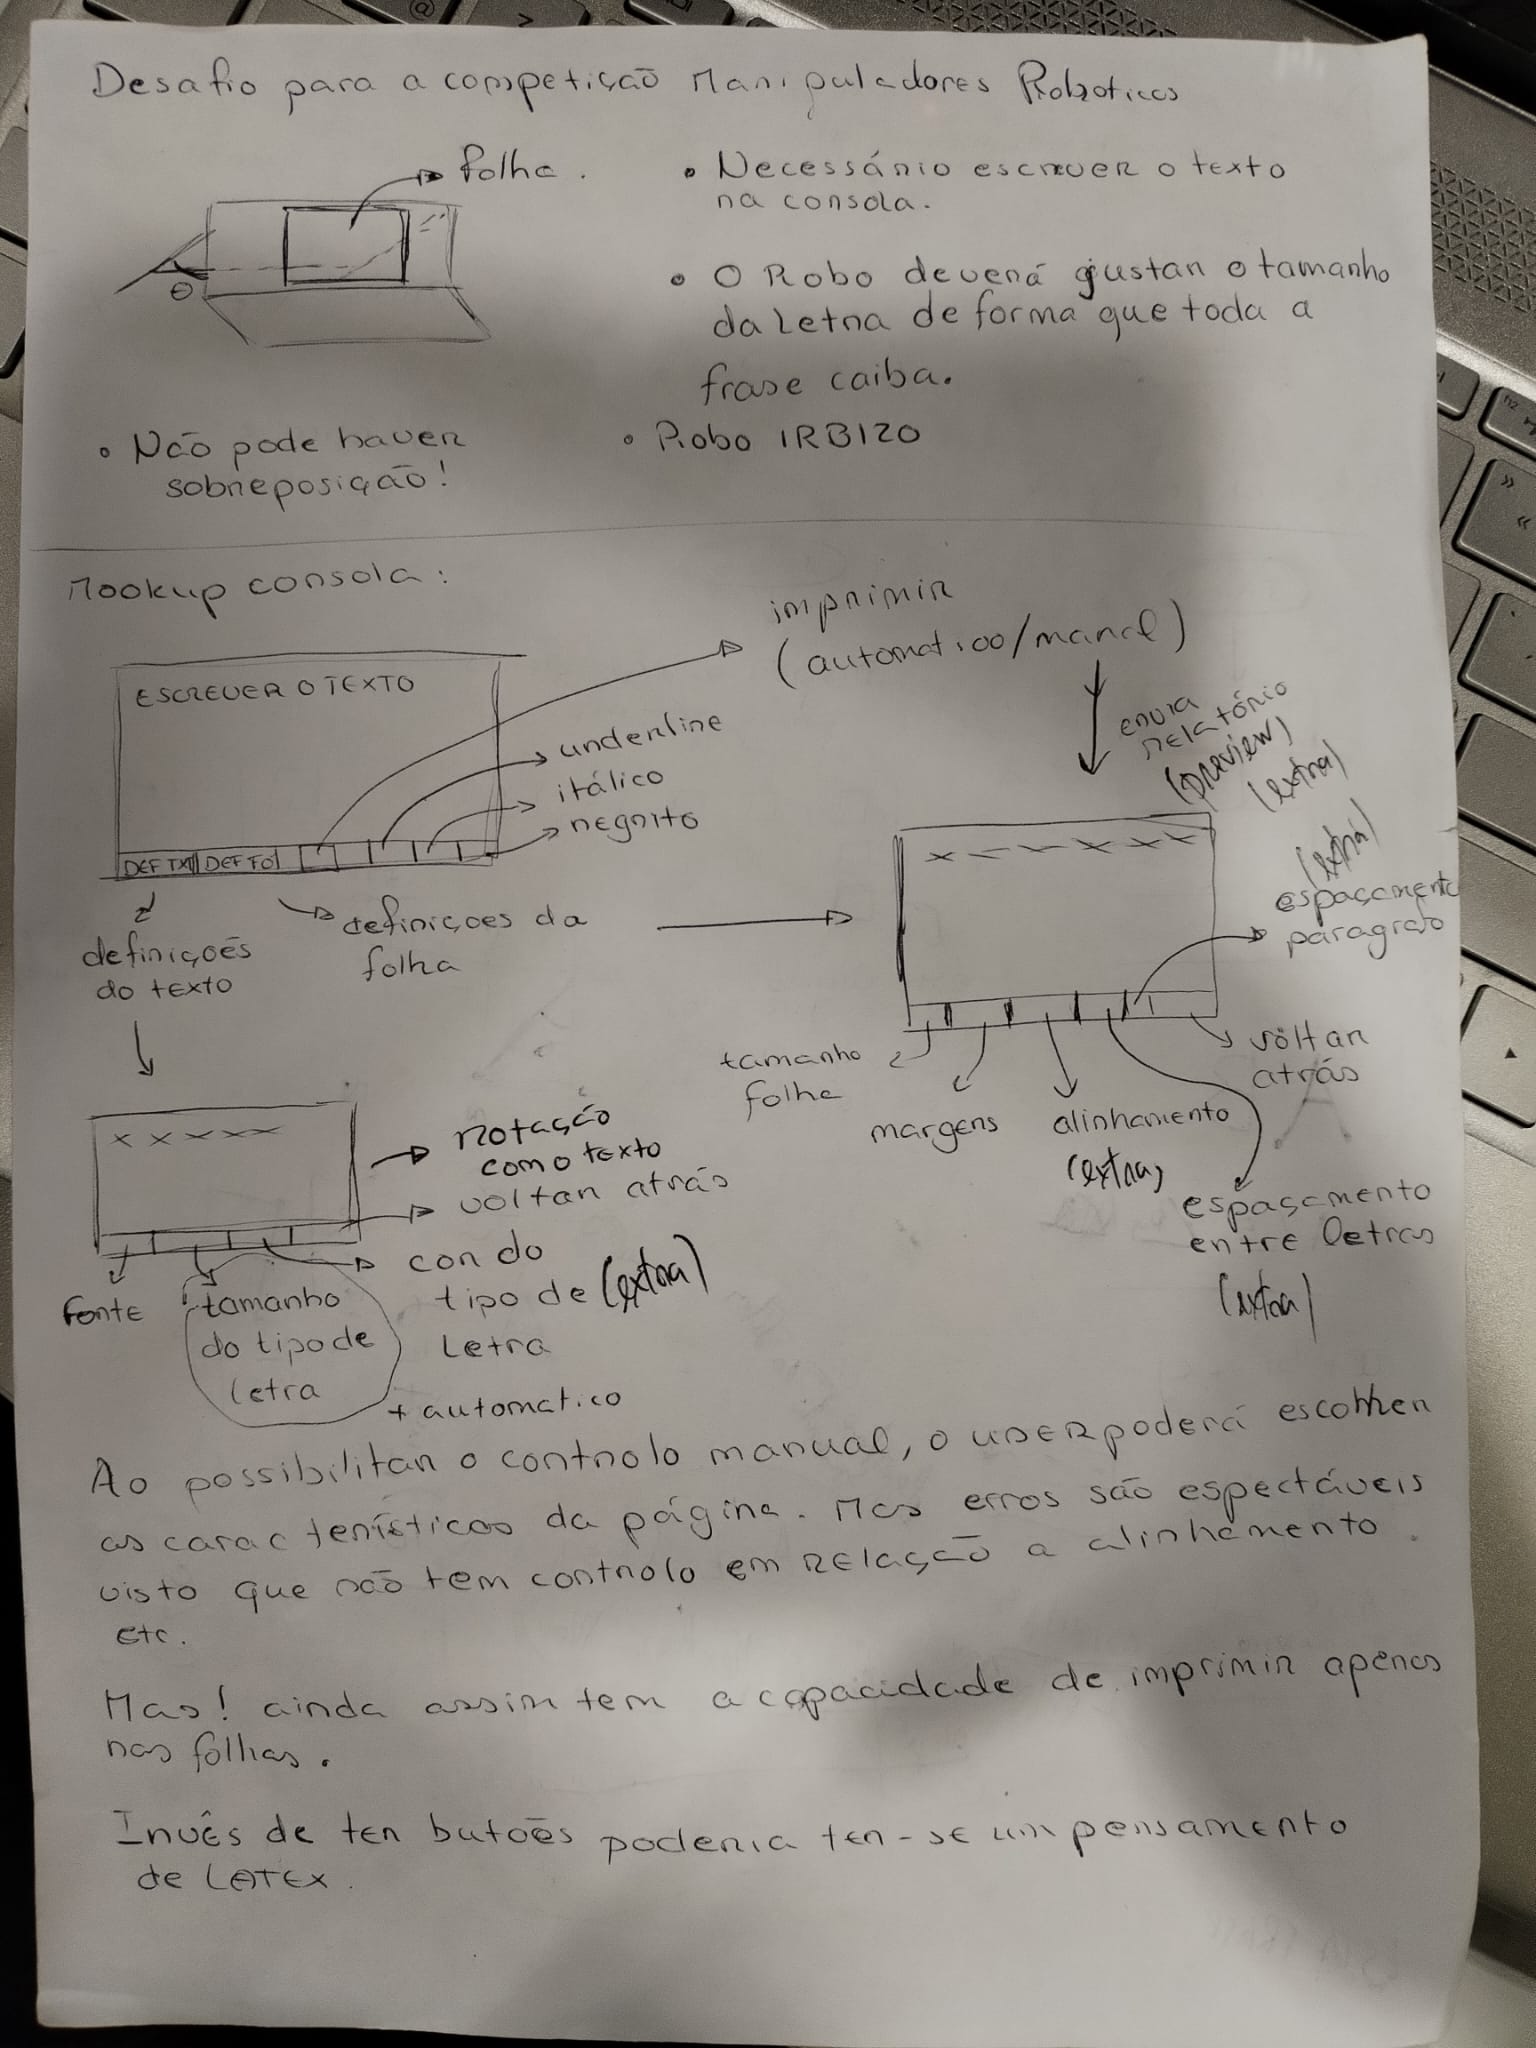 Desafio para a competição Manipuladores Roboticos
folha.
• Necessário escrever o texto
na consola.
θ
• O Robo deverá ajustar o tamanho
da Letra de forma que toda a
frase caiba.
• Não pode haver
sobreposição!
• Robo IRB120
Mookup consola:
imprimir
(automatico/manal)
ESCREVER O TEXTO
envia
relatório
(preview)
(extra)
underline
itálico
negrito
DEF TXT DEF FOl
definições
do texto
definiçoes da
folha
(extra)
espaçamento
paragrafo
tamanho
folha
margens
alinhamento
(extra)
voltar
atrás
espaçamento
entre letras
(extra)
rotação
como texto
voltar atrás
cor do
tipo de (extra)
Letra
fonte
tamanho
do tipo de
letra
+ automatico
Ao possibilitar o controlo manual, o user poderá escolher
as caracteristicas da página. Mas erros são espectáveis
visto que não tem controlo em relação a alinhamento
etc.
Mas! ainda assim tem a capacidade de imprimir apenas
nas folhas.
Invês de ter butoẽs poderia ter-se um pensamento
de LATEX.